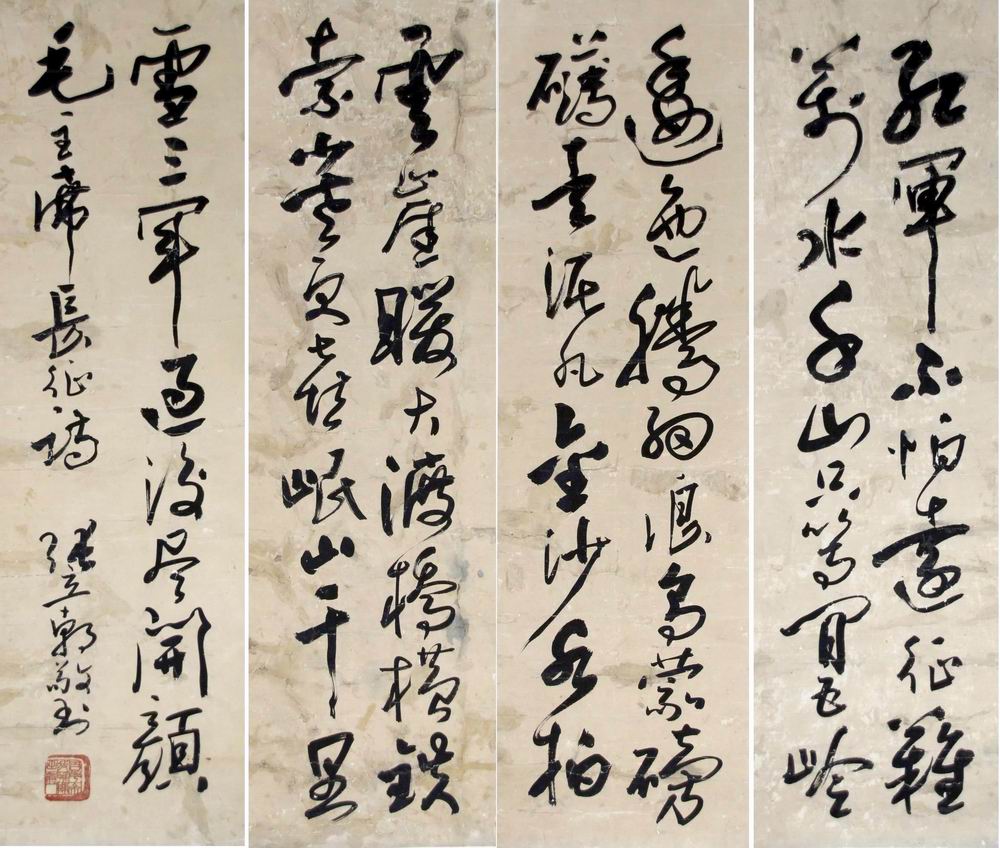 紅軍不怕遠征難
萬水千山只等閒五嶺
逶迤騰細浪烏蒙磅
礴走泥丸金沙水拍
雲崖暖大渡橋橫鉄
索寒更喜岷山千里
雪三軍過後尽開顏
毛主席長征詩 張立朝敬書